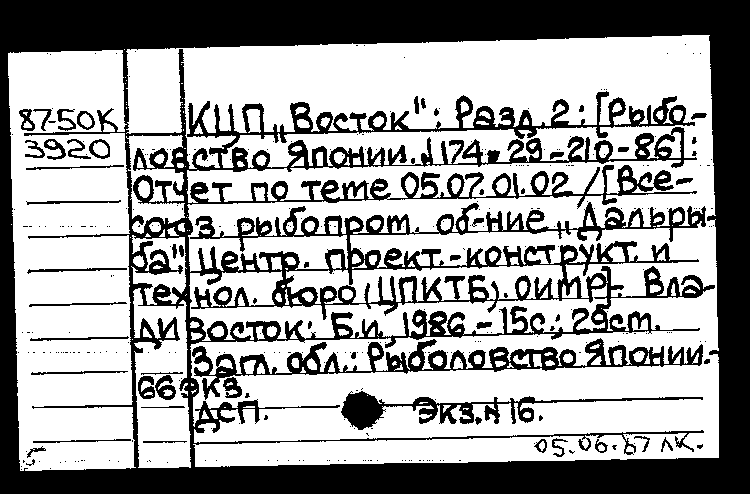 87-50К
3920
КЦП „Восток": Разд. 2: [Рыбо-
ловство Японии. N 174. 29-210-86]:
Отчет по теме 05.07.01.02 / [Все-
союз. рыбопром. об-ние „Дальры-
ба". Центр. проект.-конструкт. и
технол. бюро (ЦПКТБ). ОИМР]. Вла-
дивосток: Б.и., 1986.-15с.; 29см.
Загл. обл.: Рыболовство Японии.-
66 экз.
ДСП. Экз. N 16.
05.06.87 лк.
5